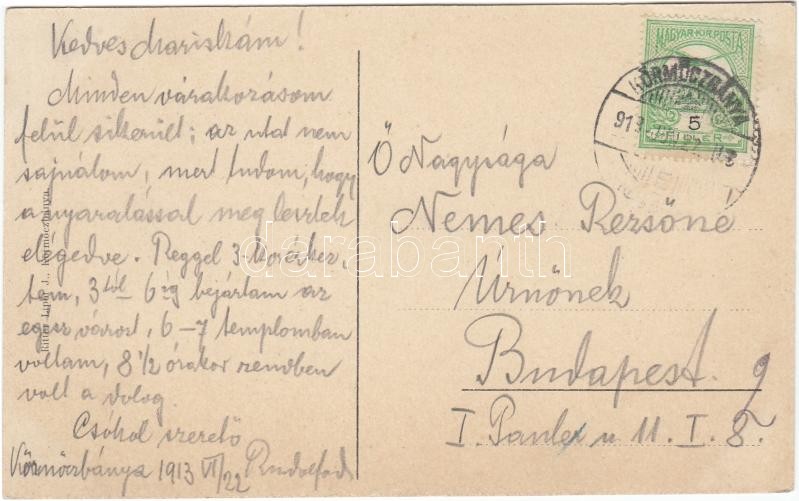 Kedves Mariskám!
Minden várakozásom
felül sikerült; az utat nem
sajnálom, mert tudom, hogy
a nyaralással meg lesztek
elégedve. Reggel 3-kor érkez-
tem, 3tól 6ig bejártam az
egész várost, 6-7 templomban
voltam, 8 1/2 órakor rendben
volt a dolog
Csókol szerető
Körmöczbánya 1913 VI/22 Rudolfod
Ritter Lipót J., Körmöczbánya.
MAGYAR KIR. POSTA
KÖRMÖCZBÁNYA
913
5
FILLÉR
Ő Nagysága
Nemes Rezsőné
Úrnőnek
Budapest.
I. Pauler u 11. I. 8.
darabanth